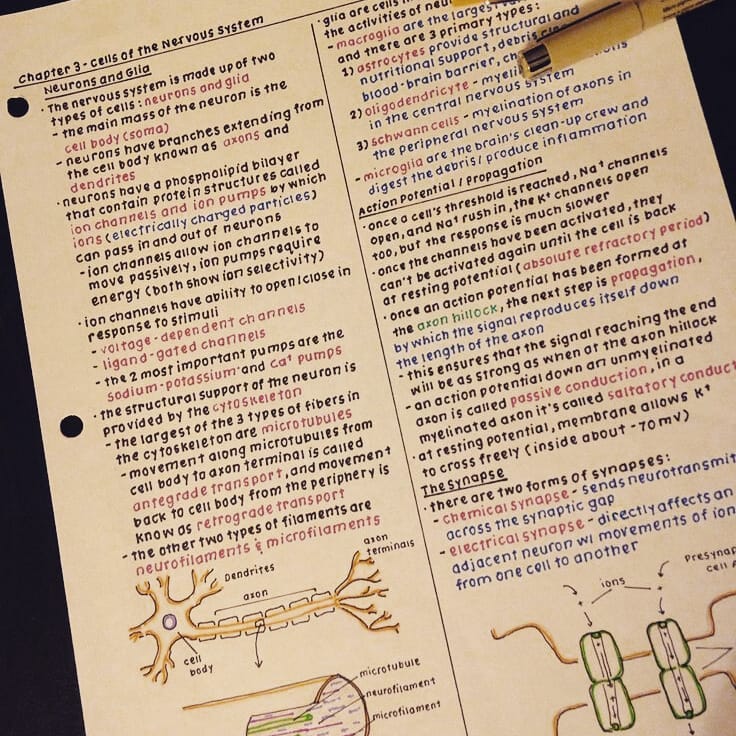 Chapter 3 - Cells of the Nervous System
Neurons and Glia
· The nervous system is made up of two
types of cells: neurons and glia
- the main mass of the neuron is the
cell body (soma)
- neurons have branches extending from
the cell body known as axons and
dendrites
· neurons have a phospholipid bilayer
that contain protein structures called
ion channels and ion pumps by which
ions (electrically charged particles)
can pass in and out of neurons
- ion channels allow ion channels to
move passively, ion pumps require
energy (both show ion selectivity)
· ion channels have ability to open/close in
response to stimuli
- voltage-dependent channels
- ligand-gated channels
- the 2 most important pumps are the
sodium-potassium and Ca+ pumps
· the structural support of the neuron is
provided by the cytoskeleton
- the largest of the 3 types of fibers in
the cytoskeleton are microtubules
- movement along microtubules from
cell body to axon terminal is called
antegrade transport, and movement
back to cell body from the periphery is
know as retrograde transport
- the other two types of filaments are
neurofilaments & microfilaments
Dendrites
axon
axon
terminals
cell
body
microtubule
neurofilament
microfilament
· glia are cells
the activities of
- macroglia are the largest
and there are 3 primary types:
1) astrocytes provide structural and
nutritional support, debris
blood-brain barrier,
2) oligodendricyte -
in the central nervous system
3) schwann cells - myelination of axons in
the peripheral nervous system
- microglia are the brain's clean-up crew and
digest the debris/produce inflammation
Action Potential / Propagation
· once a cell's threshold is reached, Na+ channels
open, and Na+ rush in, the K+ channels open
too, but the response is much slower
· once the channels have been activated, they
can't be activated again until the cell is back
at resting potential (absolute refractory period)
· once an action potential has been formed at
the axon hillock, the next step is propagation,
by which the signal reproduces itself down
the length of the axon
- this ensures that the signal reaching the end
will be as strong as when at the axon hillock
- an action potential down an unmyelinated
axon is called passive conduction, in a
myelinated axon it's called saltatory conduct
· at resting potential, membrane allows K+
to cross freely (inside about -70mV)
The Synapse
· there are two forms of synapses:
- chemical synapse - sends neurotransmit
across the synaptic gap
- electrical synapse - directly affects an
adjacent neuron w/ movements of ion
from one cell to another
ions
Presynap
cell